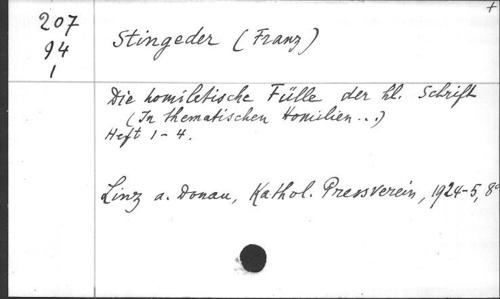 207
94
1
+
Stingeder (Franz)
Die homiletische Fülle der hl. Schrift
(In thematischen Homilien...)
Heft 1-4.
Linz a. Donau, Kathol. Pressverein, 1924-5, 8°